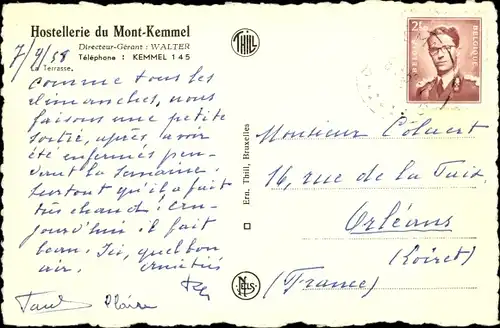 Hostellerie du Mont-Kemmel
Directeur-Gérant : WALTER
Téléphone : KEMMEL 145
La Terrasse.
7/9/58
comme tous les
dimanches, nous
faisons une petite
sortie, après avoir
été enfermés pen-
dant la semaine.
surtout qu'il a fait
très chaud ! Au-
jourd'hui il fait
bon. Ici, quel bon
air. Amitiés
THILL
Ern. Thill, Bruxelles
NELS
2F
BELGIE BELGIQUE
Monsieur
16, rue de la
Orléans
(Loiret)
(France)